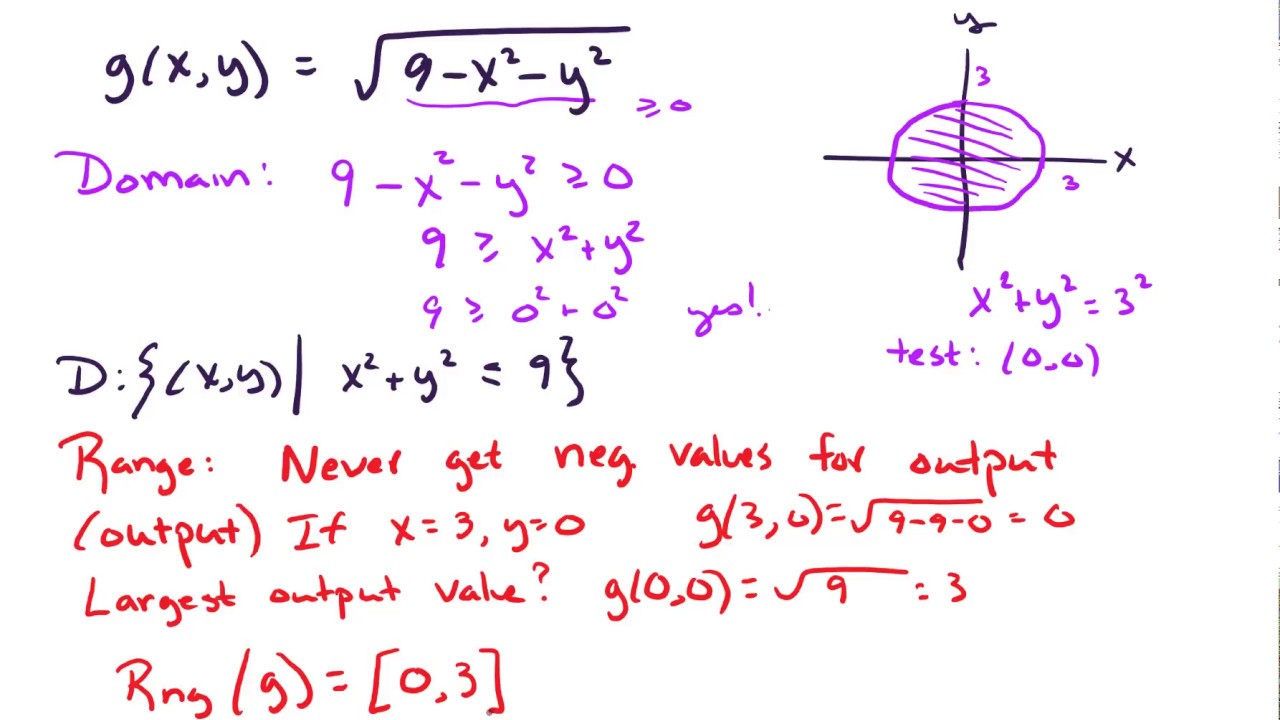 g(x,y) = √(9-x²-y²) ≥0
y
3
x
3
Domain: 9-x²-y² ≥ 0
9 ≥ x²+y²
9 ≥ 0²+0² yes!
x²+y²=3²
test: (0,0)
D:{(x,y)| x²+y² = 9}
Range: Never get neg. values for output
(output) If x=3, y=0 g(3,0)=√(9-9-0) = 0
Largest output value? g(0,0)=√9 = 3
Rng(g) = [0,3]